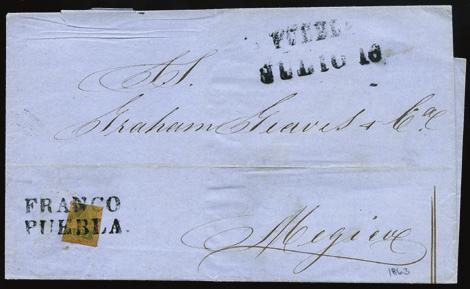 PUEBLA
JULIO 19
A S.
Graham Geaves & Ca
FRANCO
PUEBLA.
Megico
1863